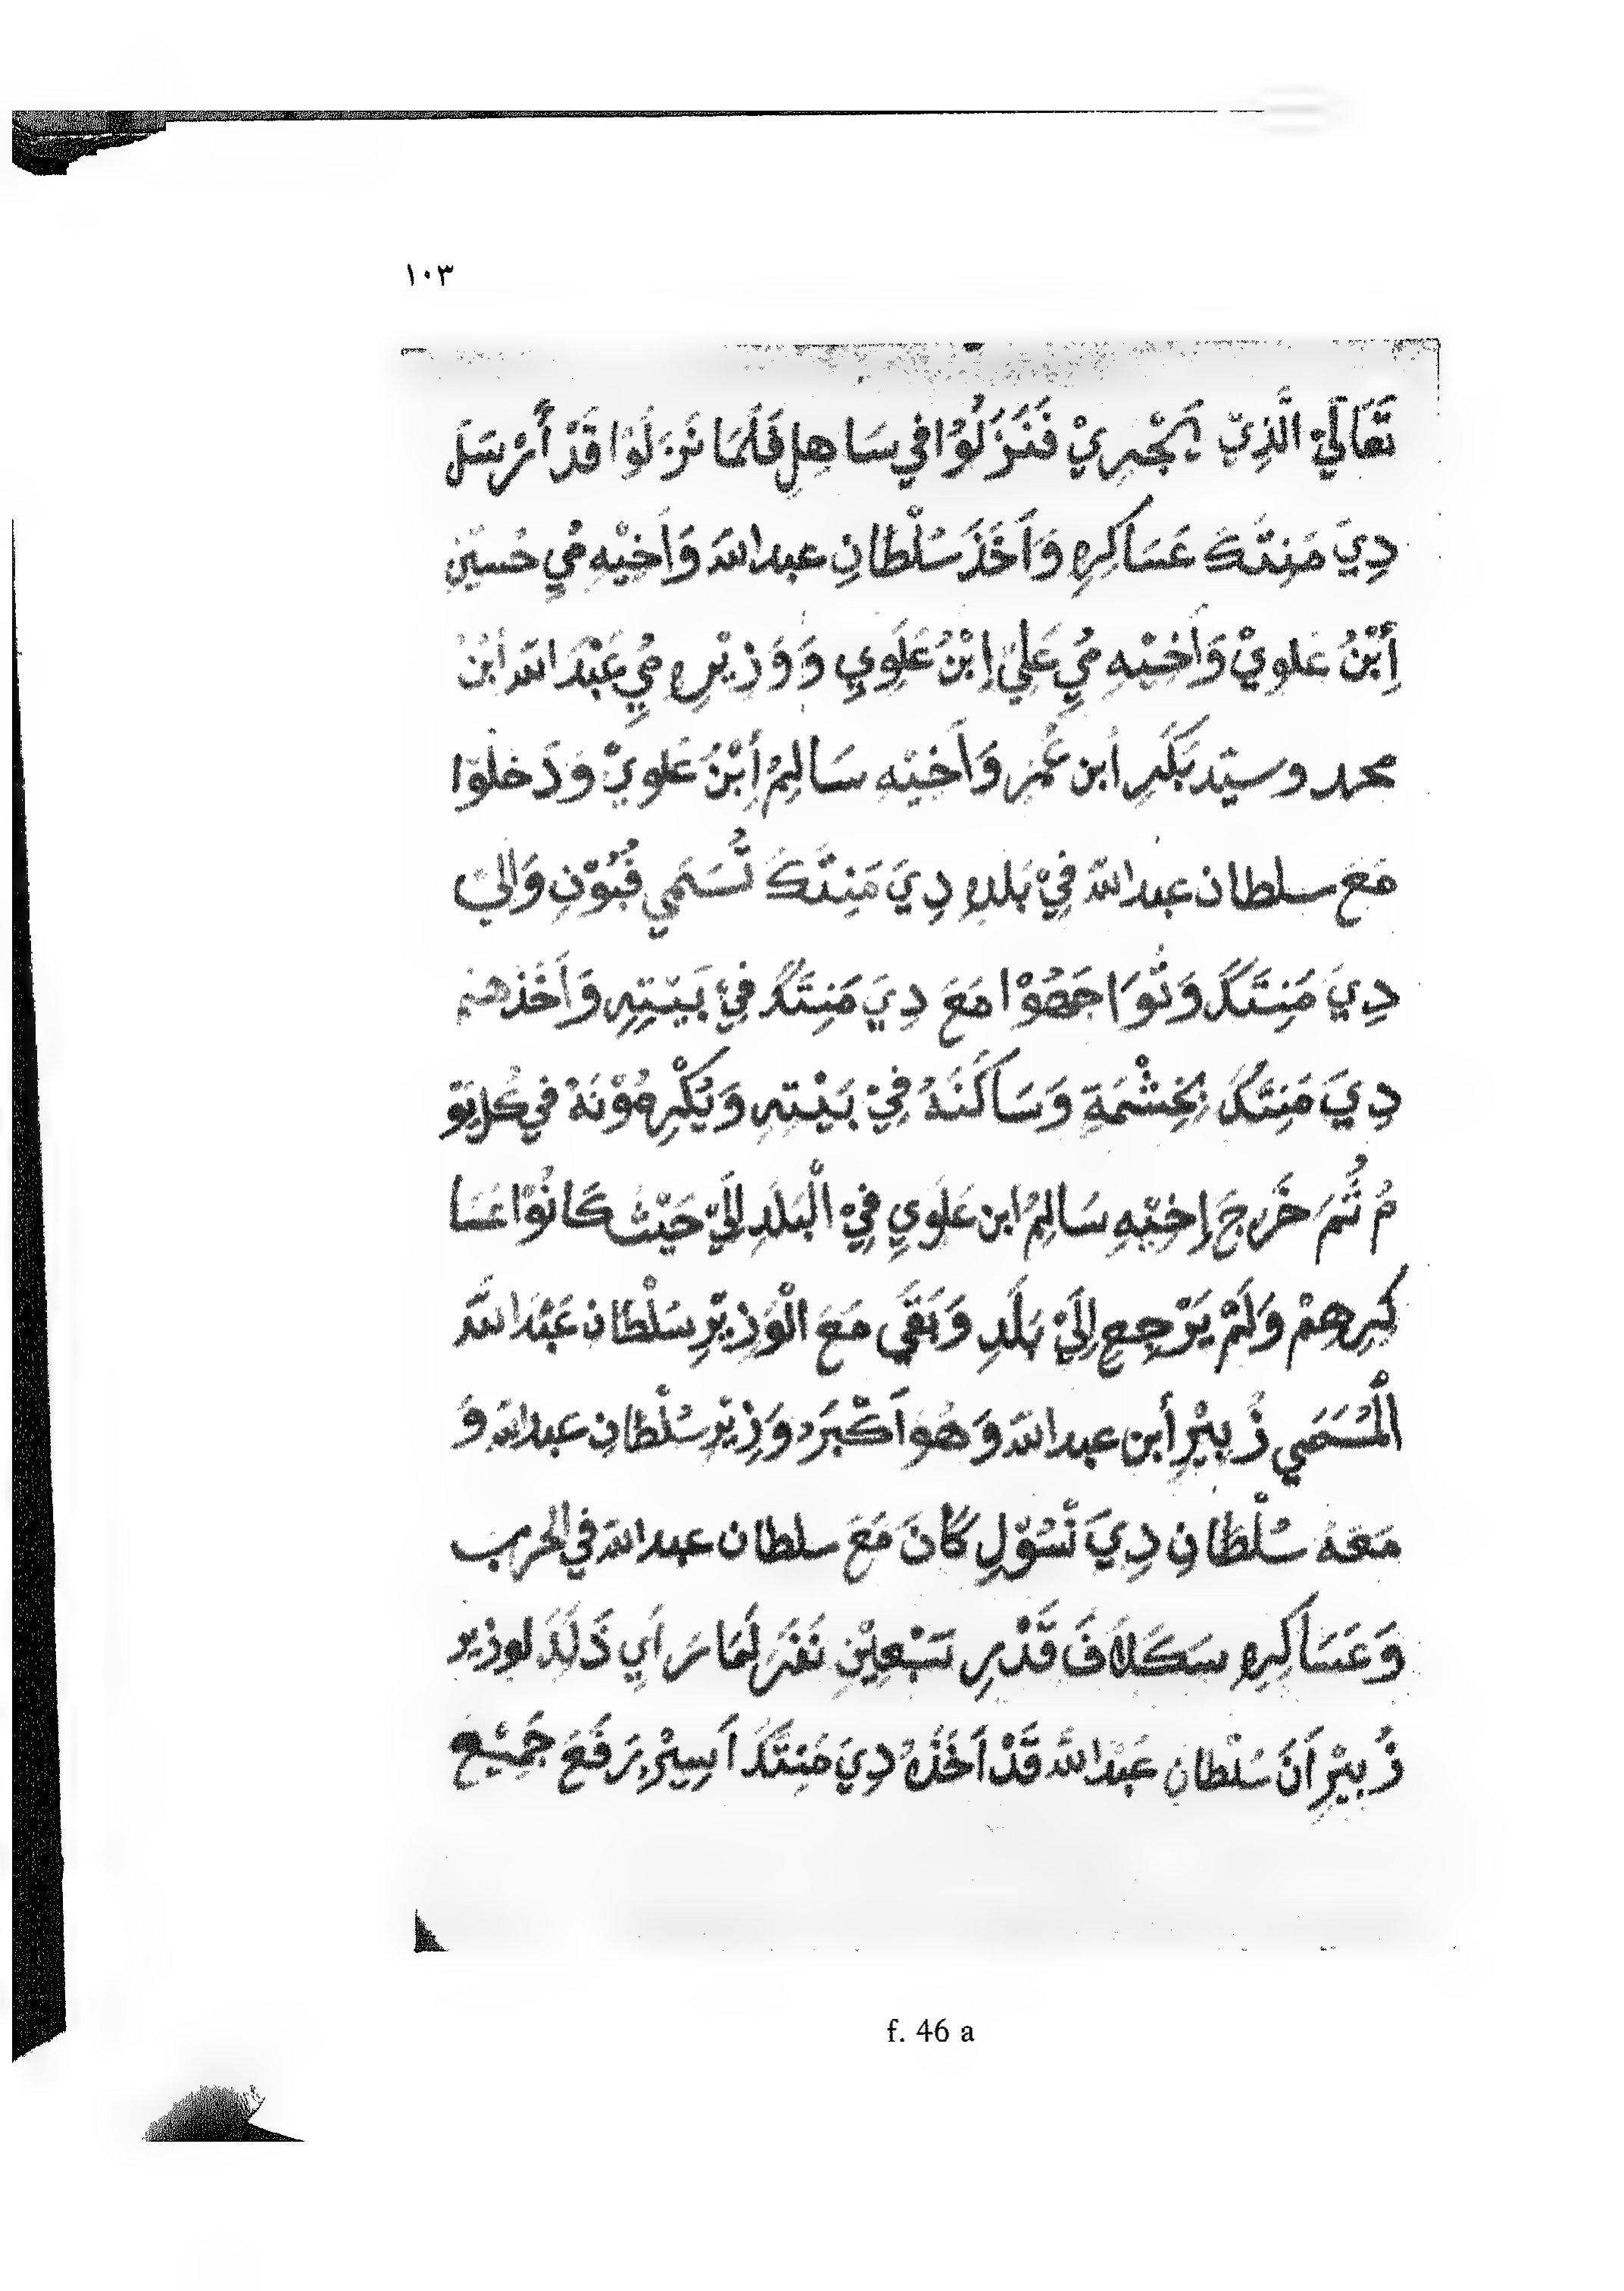 ١٠٣
تَعَالَيْ الَّذِيّ يَجْرِيْ فَنَزَلُوْا في سَاهِلِ فَلَمَّا نَزَلُوْا قَدْ أَرْسَلَ
دِيَ مَنِتَّكَ عَسَاكِرِهِ وَاَخَذَ سُلْطَانِ عبد الله وَاَخِيْهِ مُيِ حُسَيْنِ
أِبْنُ عَلوِيْ وَاَخِيْهِ مُيِ عَلِيْ إِبْنُ عَلَوِيِ وَوَزِيْرِهِ مُيِ عَبْدَ الله اَبْنُ
محمد وسيّد بَكَرِ اَبن عُمَر وَاَخِيْهِ سَالِمُ أَبْنُ عَلَوِيْ وَدَخَلُوْا
مَعَ سلطان عبد الله فِيْ بَلَدِهِ دِيَ مَنِتَّكَ تُسَمَي فُبُوْنِ وَالِيْ
دِيَ مَنِتَكَ وَتُوَاجَهُوْا مَعَ دِيَ مَنِتَكَ فِيْ بَيْتِهِ وَاَخَذَهمْ
دِيَ مَنِتَكَ بِخِشْمَةِ وَسَاكَنَهُ فِيْ بَيْتِهِ وَيُكْرِمُوْنَهُ فِي كُلِ يَوْ
مُ ثُمَ خَرَجَ إِخِيْهِ سَالِمُ ابن عَلَوِي فِيْ الْبَلَدِ اِلَيْ حَيْثُ كَانُوْا عَسَا
كِرِهِمْ وَلَمْ يَرْجِعِ اِلَيْ بَلَدِ وَبَقَي مَعَ الْوَزِيْرِ سَلْطَان عَبْدَ الله
الْمُسَمَي زُبِيْرِ اَبن عبد الله وَهُوَ اَكْبَرَ وَزِيْرِ سُلْطَانِ عبد الله وَ
مَعَهُ سُلْطَانِ دِيَ نْسُوْلِ كَانَ مَعَ سلطان عبد الله في الحرب
وَعَسَاكِرِهِ سَكَلَافَ قَدْرِ سَبْعِيْنِ نَفَرَ لَمَا رَاَيِ ذَلَكَ لوزير
زُبِيْرِ اَنَ سُلْطَانِ عَبْدَ الله قَدْ اَخَذَهُ دِيَ مَنِتَّكَ اَسِيْرِ رَفَعَ جَمِيْع
f. 46 a